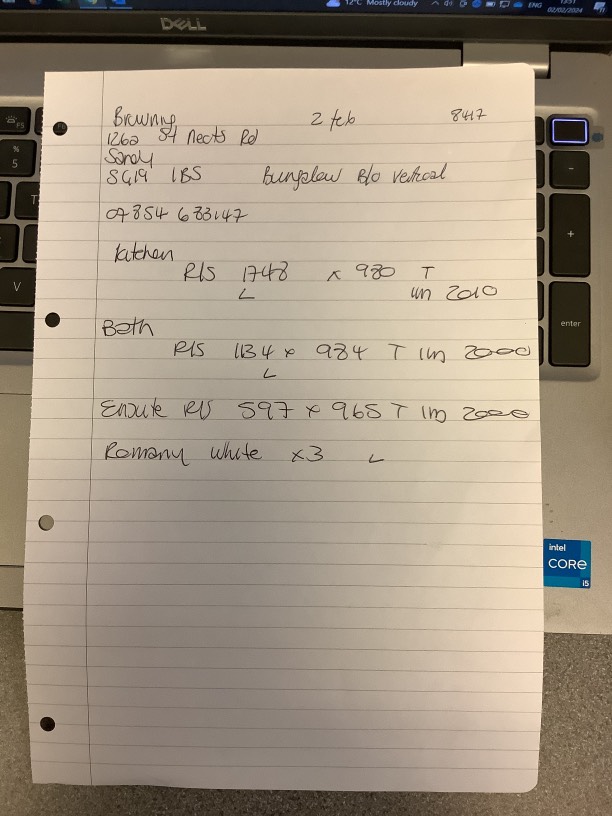 12°C Mostly cloudy ENG 13:51
02/02/2024
DELL
Browning 2 feb 8417
126a St Neots Rd
Sandy
SG19 1BS Bungalow B/O Vertical
07854 683147
Kitchen
R/S 1748 x 980 T
L un 2010
Bath
R/S 1134 x 984 T un 2000
L
Ensuite R/S 597 x 965 T un 2000
Romany White x3 L
F5
%
5
T
V
-
+
enter
intel
CORE
i5